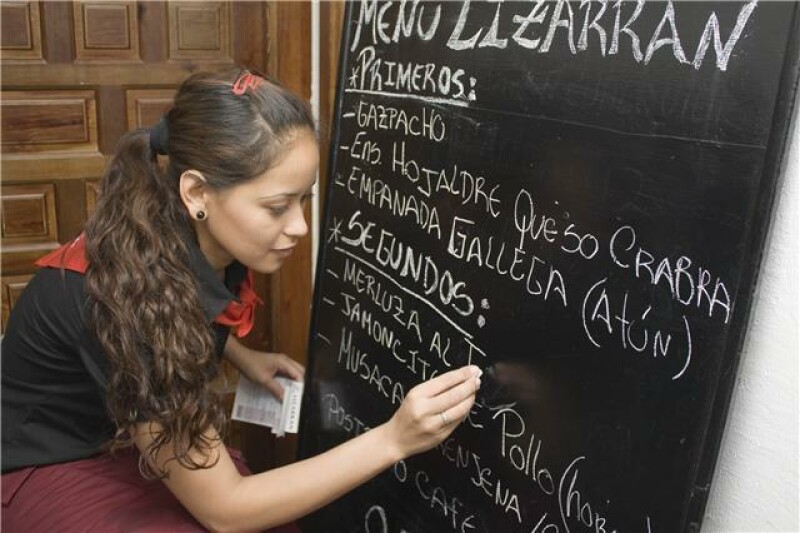 MENÚ LIZARRAN
*PRIMEROS:
- GAZPACHO
- ENS. HOJALDRE QUESO CRABRA
- EMPANADA GALLEGA (ATÚN)
* SEGUNDOS:
- MERLUZA AL
- JAMONCITO POLLO (
- MUSACA RENJENA
O CAFE